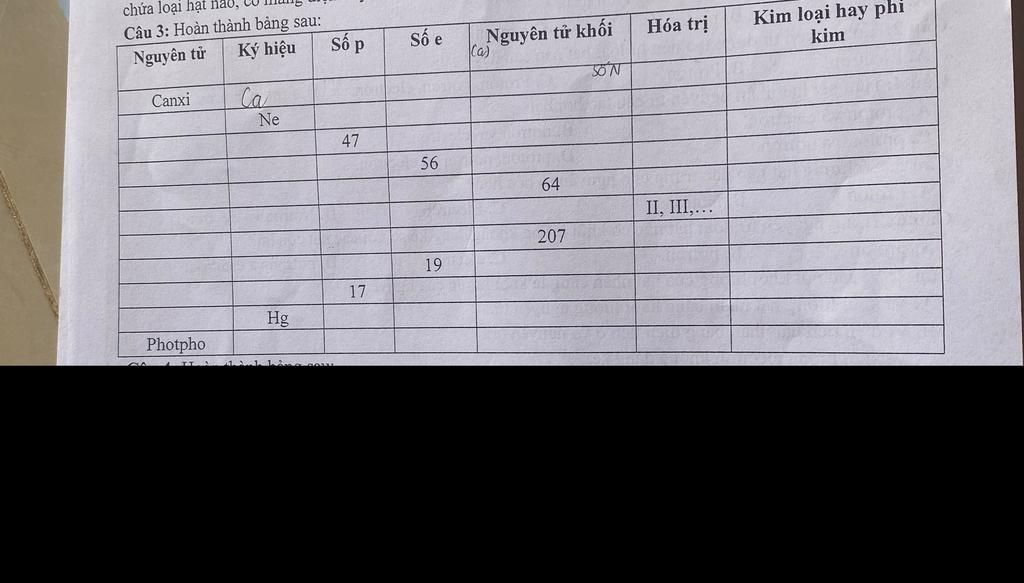 chứa loại hạt nào, có mang
Câu 3: Hoàn thành bảng sau:
Nguyên tử Ký hiệu Số p Số e Nguyên tử khối Hóa trị Kim loại hay phi kim
(a)
SỐ N
Canxi Ca
Ne
47
56
64
II, III,…
207
19
17
Hg
Photpho
Hoàn thành bảng sau: